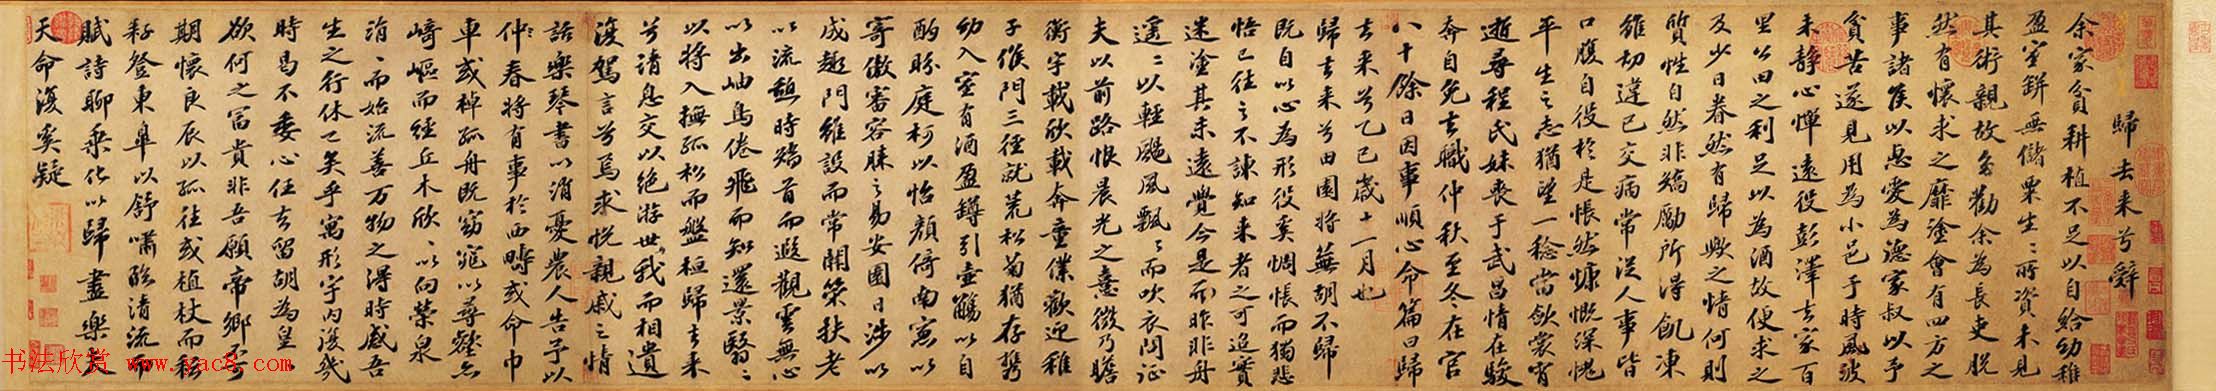 歸去来兮辭
余家貧耕植不足以自給幼稚
盈室缾無儲粟生〻所資未見
其術親故多勸余為長吏脱
然有懷求之靡塗會有四方之
事諸侯以惠愛為德家叔以予
貧苦遂見用為小邑于時風波
未静心憚遠役彭澤去家百
里公田之利足以為酒故便求之
及少日眷然有歸歟之情何則
質性自然非矯勵所得飢凍
雖切違己交病常從人事皆
口腹自役於是悵然慷慨深愧
平生之志猶望一稔當斂裳宵
逝尋程氏妹喪于武昌情在駿
奔自免去職仲秋至冬在官
八十餘日因事順心命篇曰歸
去来兮乙巳歲十一月也
歸去来兮田園將蕪胡不歸
既自以心為形役奚惆悵而獨悲
悟已往之不諫知来者之可追實
迷塗其未遠覺今是而昨非舟
遥〻以輕颺風飄〻而吹衣問征
夫以前路恨晨光之熹微乃瞻
衡宇載欣載奔童僕歡迎稚
子候門三徑就荒松菊猶存攜
幼入室有酒盈罇引壺觴以自
酌眄庭柯以怡顔倚南窓以
寄傲審容膝之易安園日涉以
成趣門雖設而常關策扶老
以流憩時矯首而遐觀雲無心
以出岫鳥倦飛而知還景翳〻
以將入撫孤松而盤桓歸去来
兮請息交以絶游世我而相遺
復駕言兮焉求悦親戚之情
話樂琴書以消憂農人告予以
仲春將有事於西疇或命巾
車或棹孤舟既窈窕以尋壑亦
崎嶇而經丘木欣〻以向榮泉
涓〻而始流善万物之得時感吾
生之行休已矣乎寓形宇内復幾
時曷不委心任去留胡為皇〻
欲何之富貴非吾願帝鄉不可
期懷良辰以孤往或植杖而耘
耔登東皐以舒嘯臨清流而
賦詩聊乘化以歸盡樂夫
天命復奚疑
书法欣赏 www.yac8.com